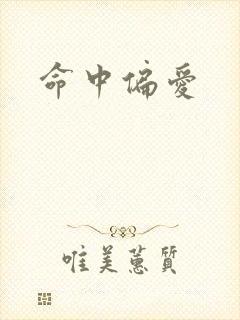 命中偏爱
唯美蕙質